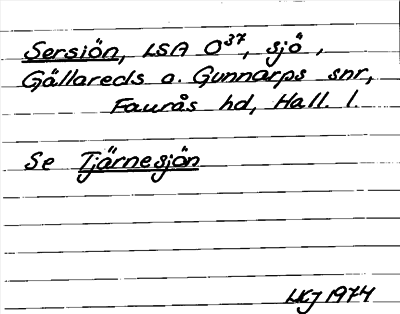 Sersjön, LSA O³⁷, sjö,
Gällareds o. Gunnarps snr,
Faurås hd, Hall. l.
Se Tjärnesjön
LKJ 1974